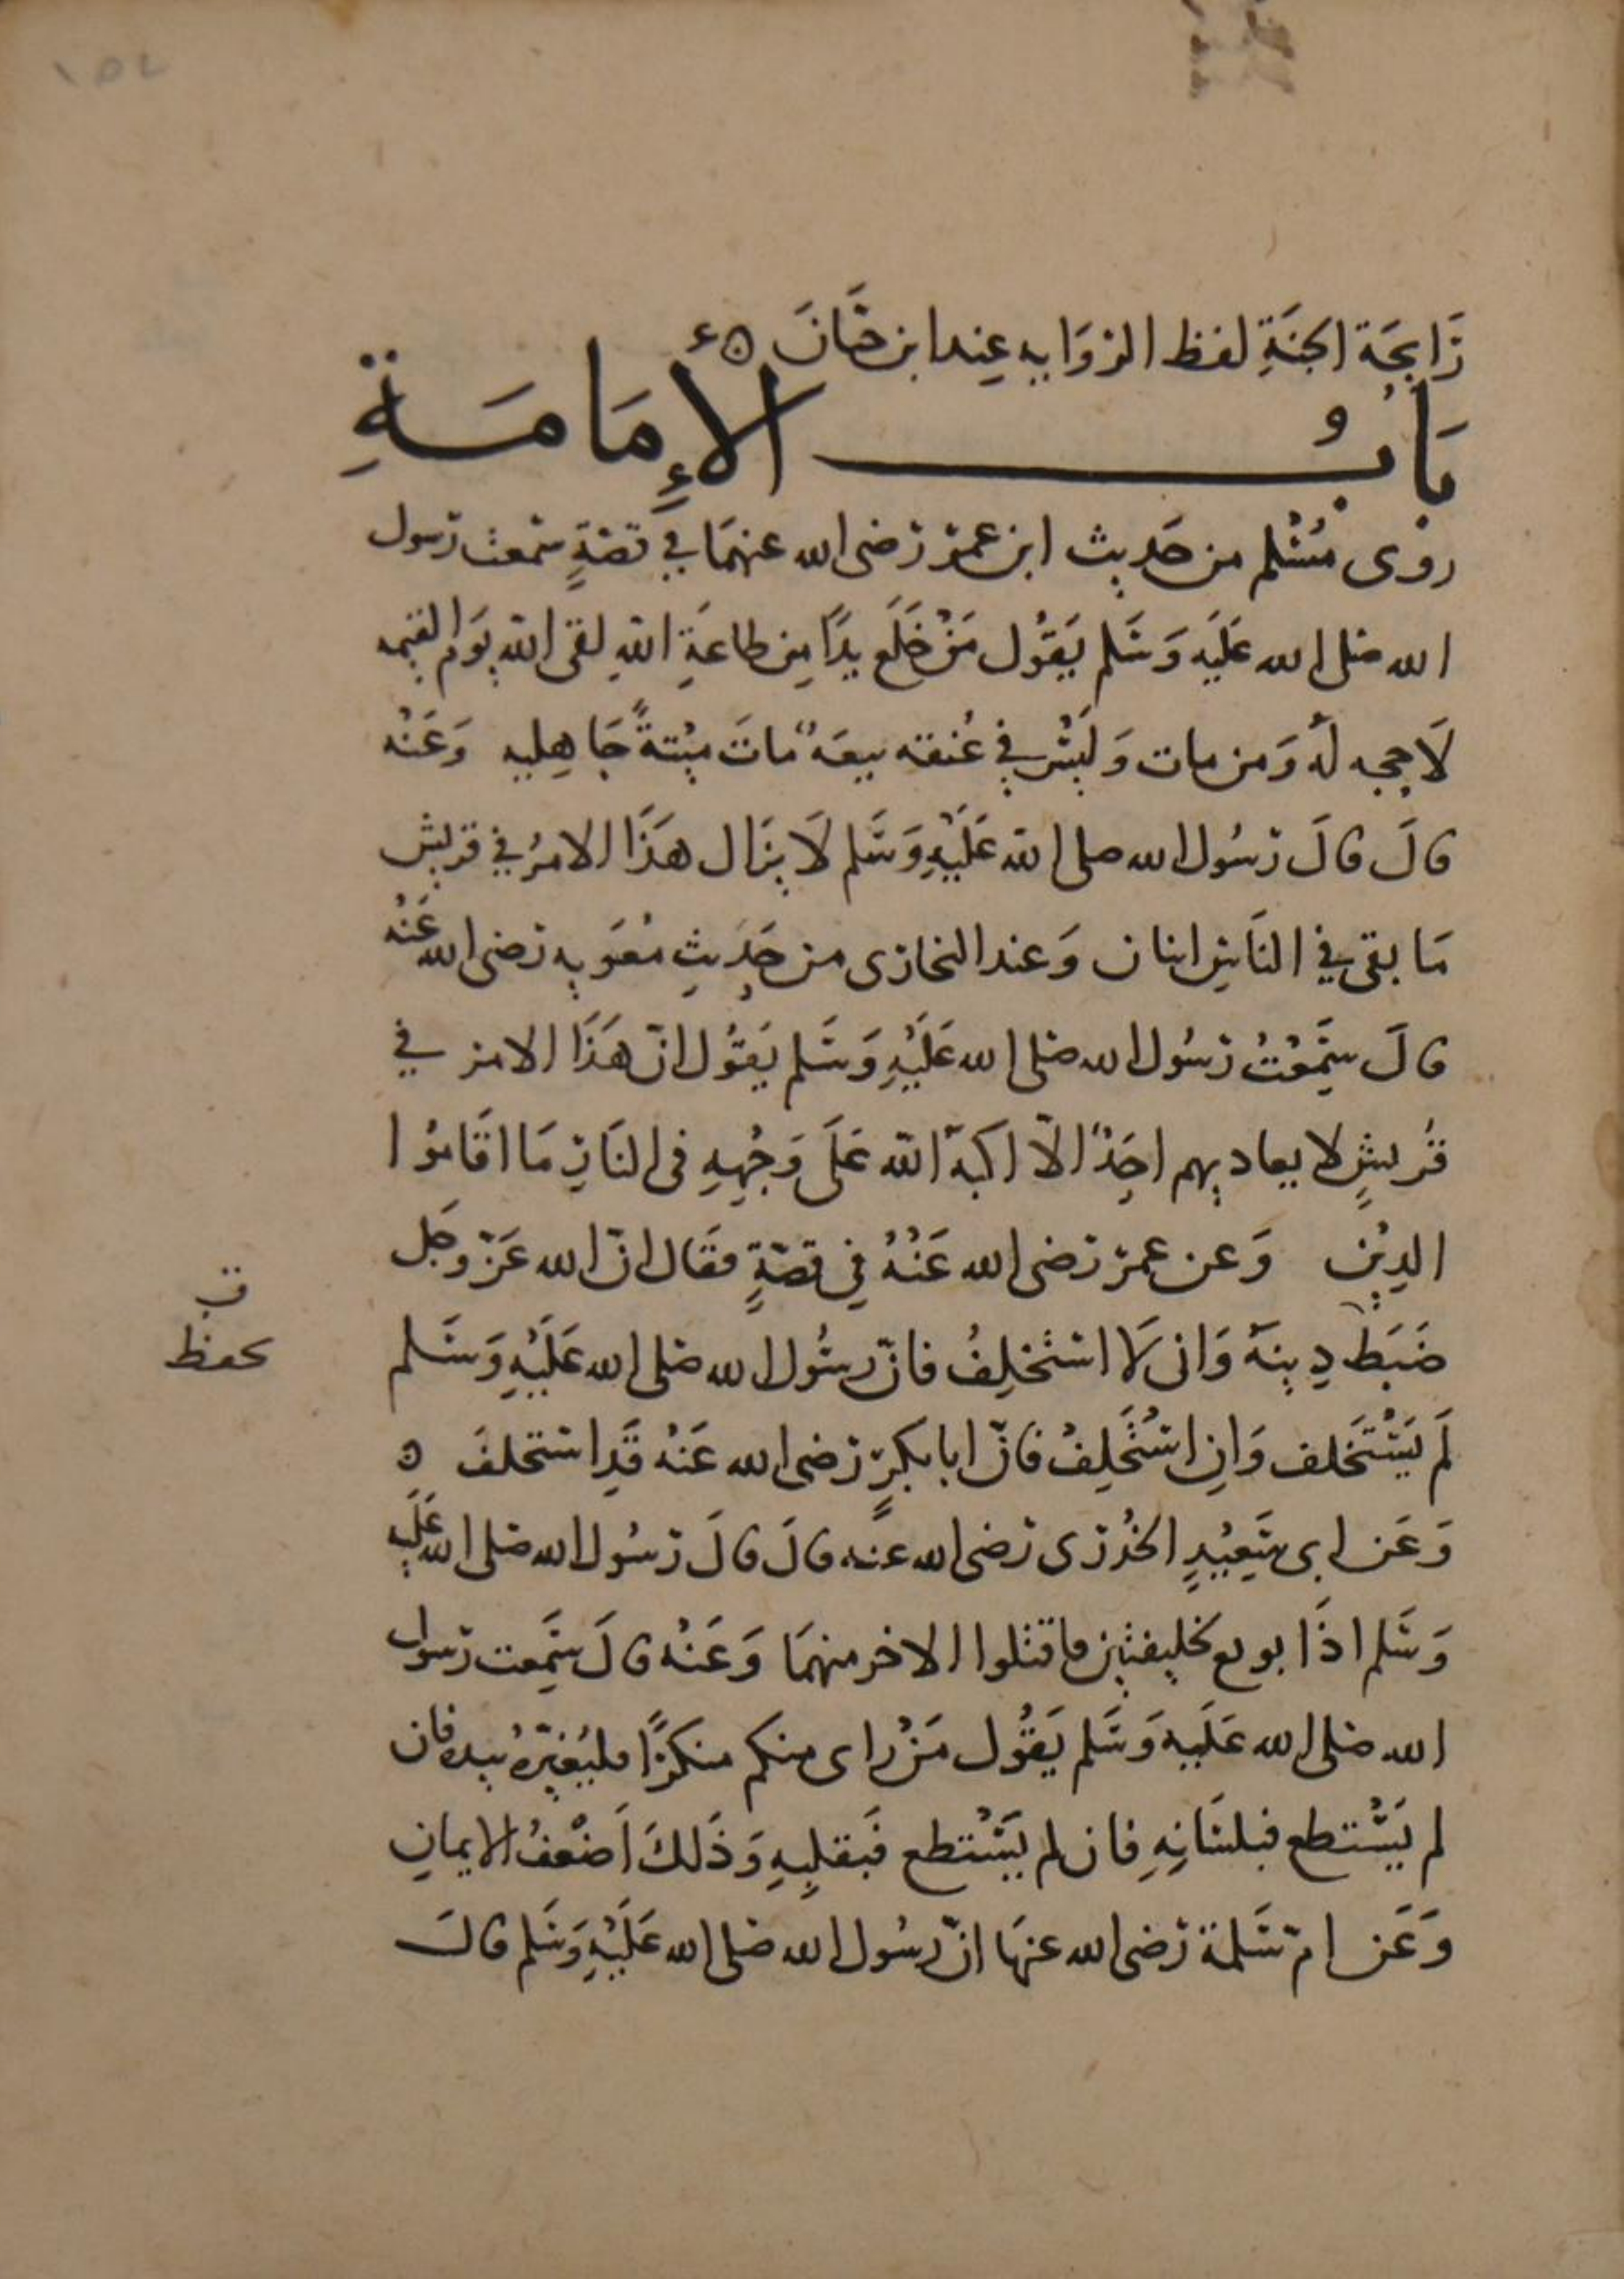 ١٥٢
رَايحَة الجنَةِ لفظ الروَايه عِند ابن حبَّانَ ٥ء
بَابُ الإِمَامَةِ
روى مُسْلم من حَديث ابن عمرَ رَضى الله عنهمَا في قصَةٍ سَمعت رَسول
الله صلى الله عَلَيه وَسَلم يَقوُل مَنْ خَلَع يدًا مِن طاعَةِ اللهِ لقى الله يَوم القيمه
لَا حجه لهُ وَمن مات وَليْسَ في عُنقه بيعَهٌ مَاتَ مِيْتةً جَاهِليه وَعَنْه
قالَ قالَ رَسُول الله صلى الله عَلَيْهِ وَسَلم لَا يزَال هَذَا الامرُ في قريش
مَا بقى في النَاسِ اثنان وَعند البخارى من حَدِيثِ مُعَويه رَضى الله عَنْه
قالَ سَمِعْتُ رَسُول الله صَلى الله عَلَيْهِ وَسَلم يَقوُل انّ هَذَا الامر في
قُريشٍ لا يعاديهم احَدٌ الّا اكبهُ الله عَلَى وَجْههِ فى النَارِ مَا اقَامُوا
الدِيْنِ وَعن عمرَ رَضى الله عَنْهُ في قصّةٍ فقَال انّ الله عَزّ وجَل
ضَبَط دِينهُ وَانى لَا اسْتَخلِفُ فانّ رسُول الله صَلى الله عَلَيْهِ وَسَلم
ق
يحفظ
لَم يَسْتَخلف وَانِ اسْتَخلِفُ فانّ ابا بَكرٍ رَضى الله عَنهُ قَدِ استخلفَ ٥
وَعَن ابى سَعِيْدٍ الخدْرى رَضى الله عنَه قالَ قالَ رَسُول الله صَلى الله عَليه
وَسَلم اذَا بويع لخليفتين فاقتلوا الاخر منهمَا وَعَنْه قالَ سَمِعت رَسول
الله صَلى الله عَلَيه وَسَلم يَقوُل مَنْ راى منكم منكرًا فليُغيّرهُ بيده فان
لم يَسْتطع فبلسَانِهِ فان لم يَسْتطع فَبقلبِهِ وَذَلكَ اَضْعفُ الايمانِ
وَعَن امّ سَلمة رَضى الله عنهَا انّ رسُول الله صَلى الله عَلَيْهِ وَسَلم قالَ